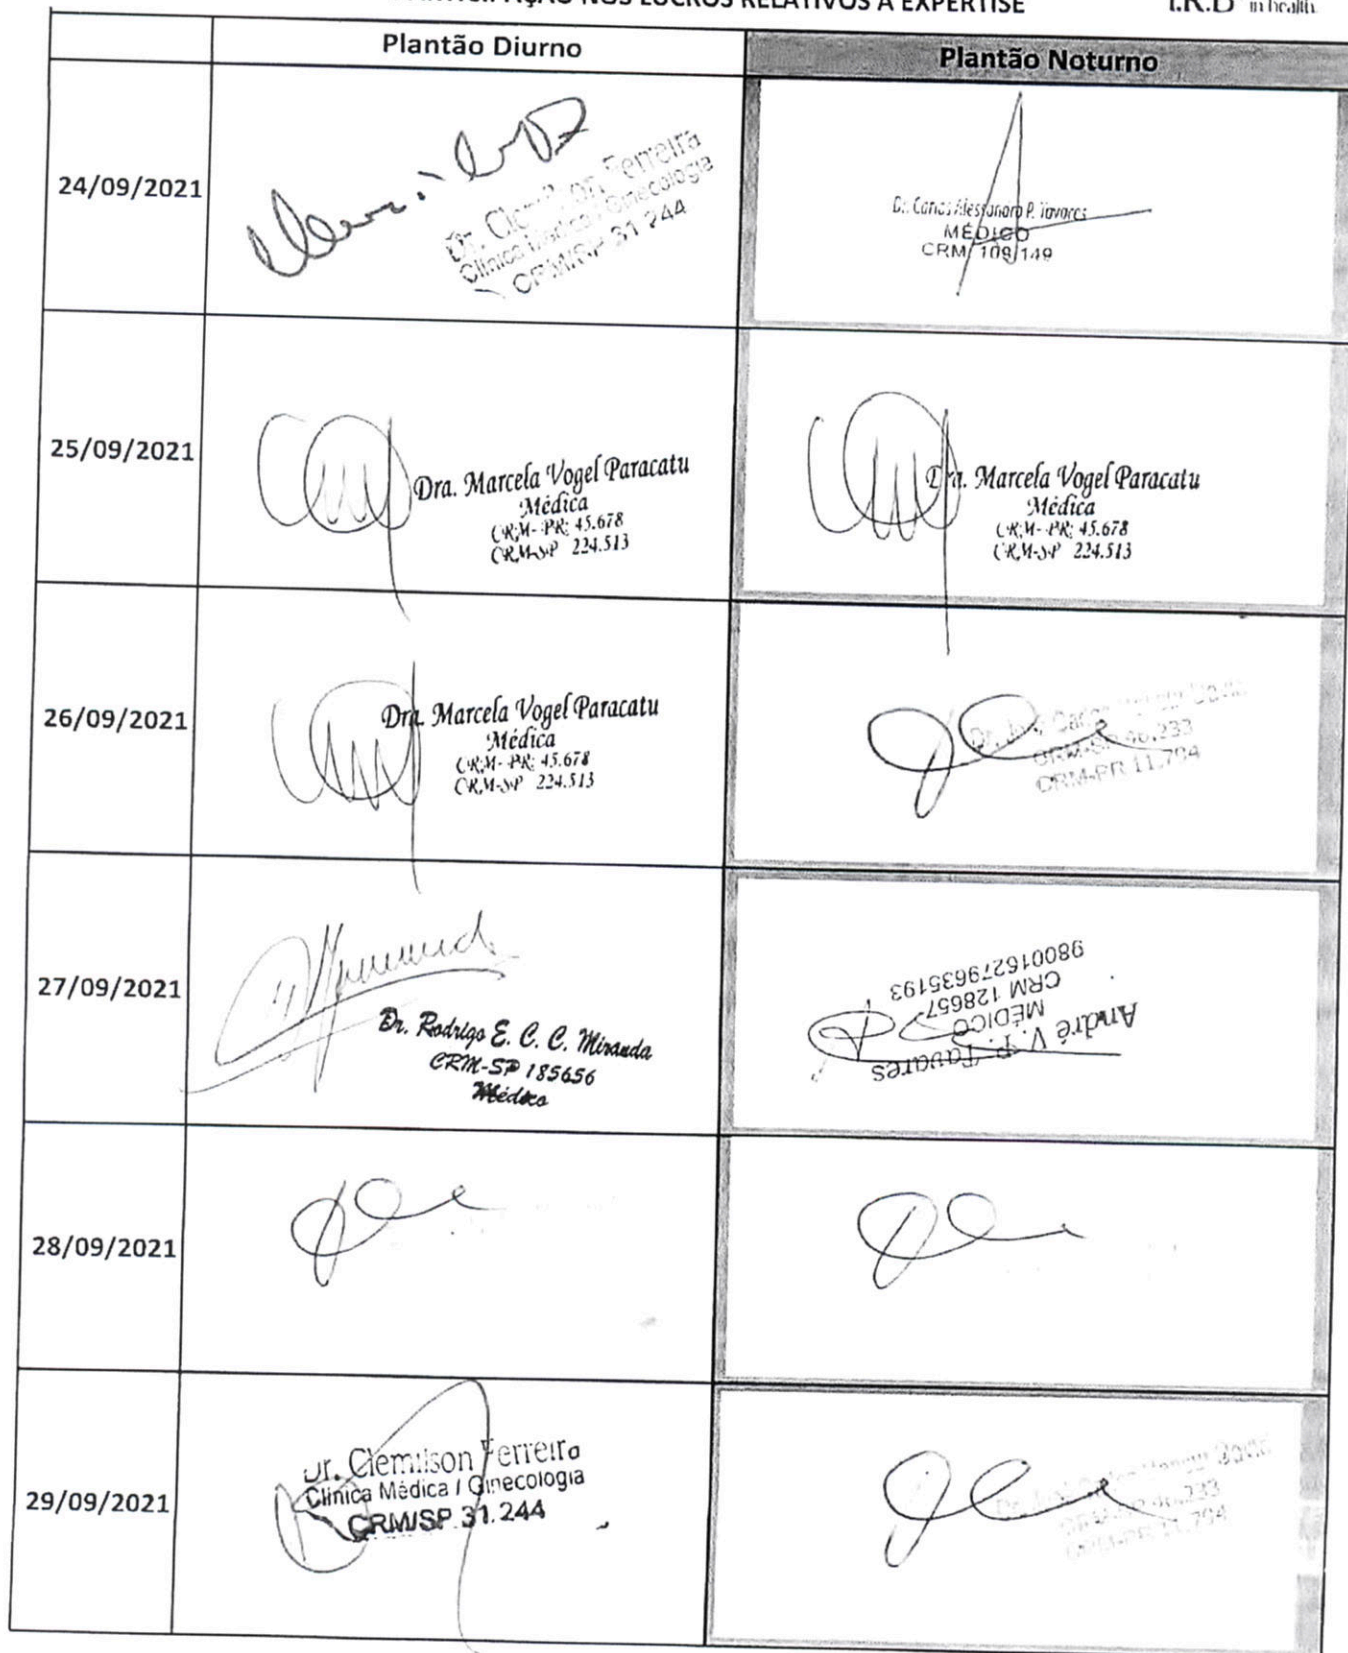 NOS LUCROS RELATIVOS A EXPERTISE
I.R.D in health
Plantão Diurno
Plantão Noturno
24/09/2021
Dr. Clemilson Ferreira
Clínica Médica / Ginecologia
CRM/SP 31.244
Dr. Carlos Alessandro P. Tavares
MÉDICO
CRM 109149
25/09/2021
Dra. Marcela Vogel Paracatu
Médica
CRM-PR: 45.678
CRM-SP 224.513
Dra. Marcela Vogel Paracatu
Médica
CRM-PR: 45.678
CRM-SP 224.513
26/09/2021
Dra. Marcela Vogel Paracatu
Médica
CRM-PR: 45.678
CRM-SP 224.513
Dr. José Carlos
CRM-SP 46.233
CRM-PR 11.794
27/09/2021
Dr. Rodrigo E. C. C. Miranda
CRM-SP 185656
Médico
André V. P. Tavares
MÉDICO
CRM 128657
980016279635193
28/09/2021
29/09/2021
Dr. Clemilson Ferreira
Clínica Médica / Ginecologia
CRM/SP 31.244
Carlos
46.233
CRM-PR 11.794